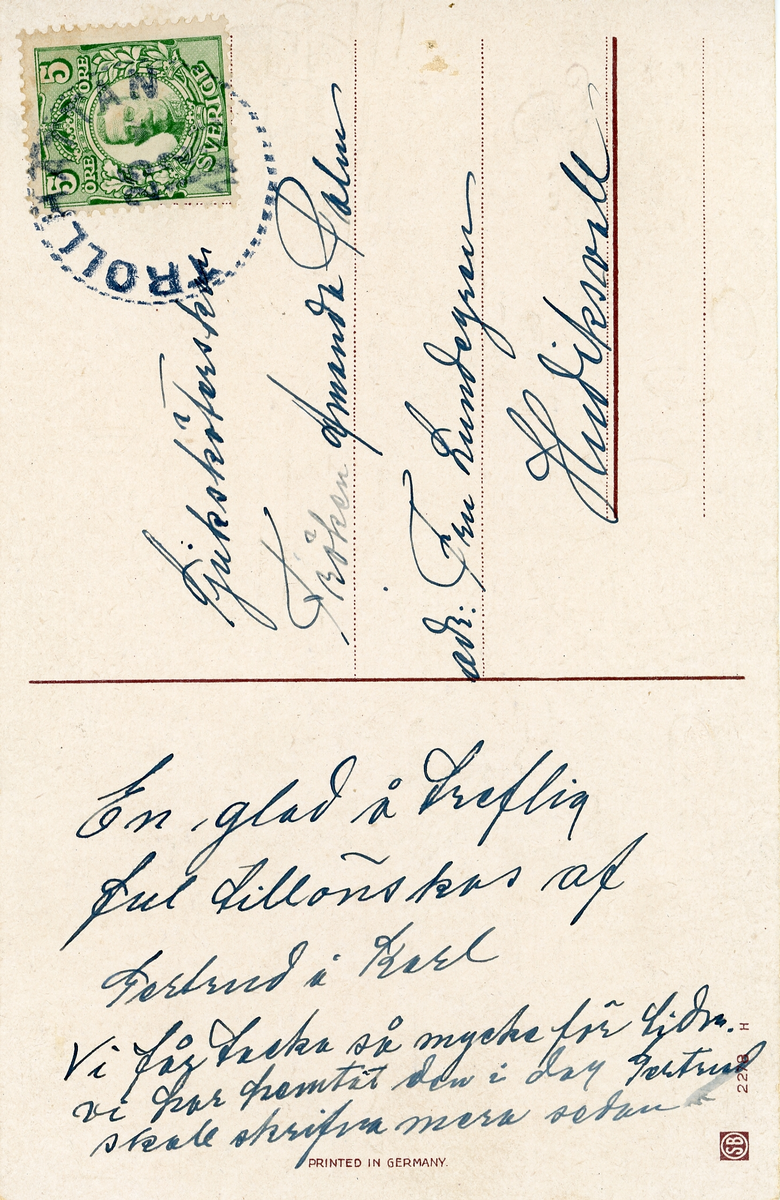 5 ÖRE 5 ÖRE
SVERIGE
TROLLHÄTTAN
Sjuksköterskan
Fröken Amanda Palm
adr. Fru Lundegren
Hudiksvall
En glad å treflig
Jul tillönskas af
Gertrud å Karl
Vi får tacka så mycke för tidn.
vi har hemtat den i dag Gertrud
skall skrifva mera sedan
PRINTED IN GERMANY.
2278 H
SB